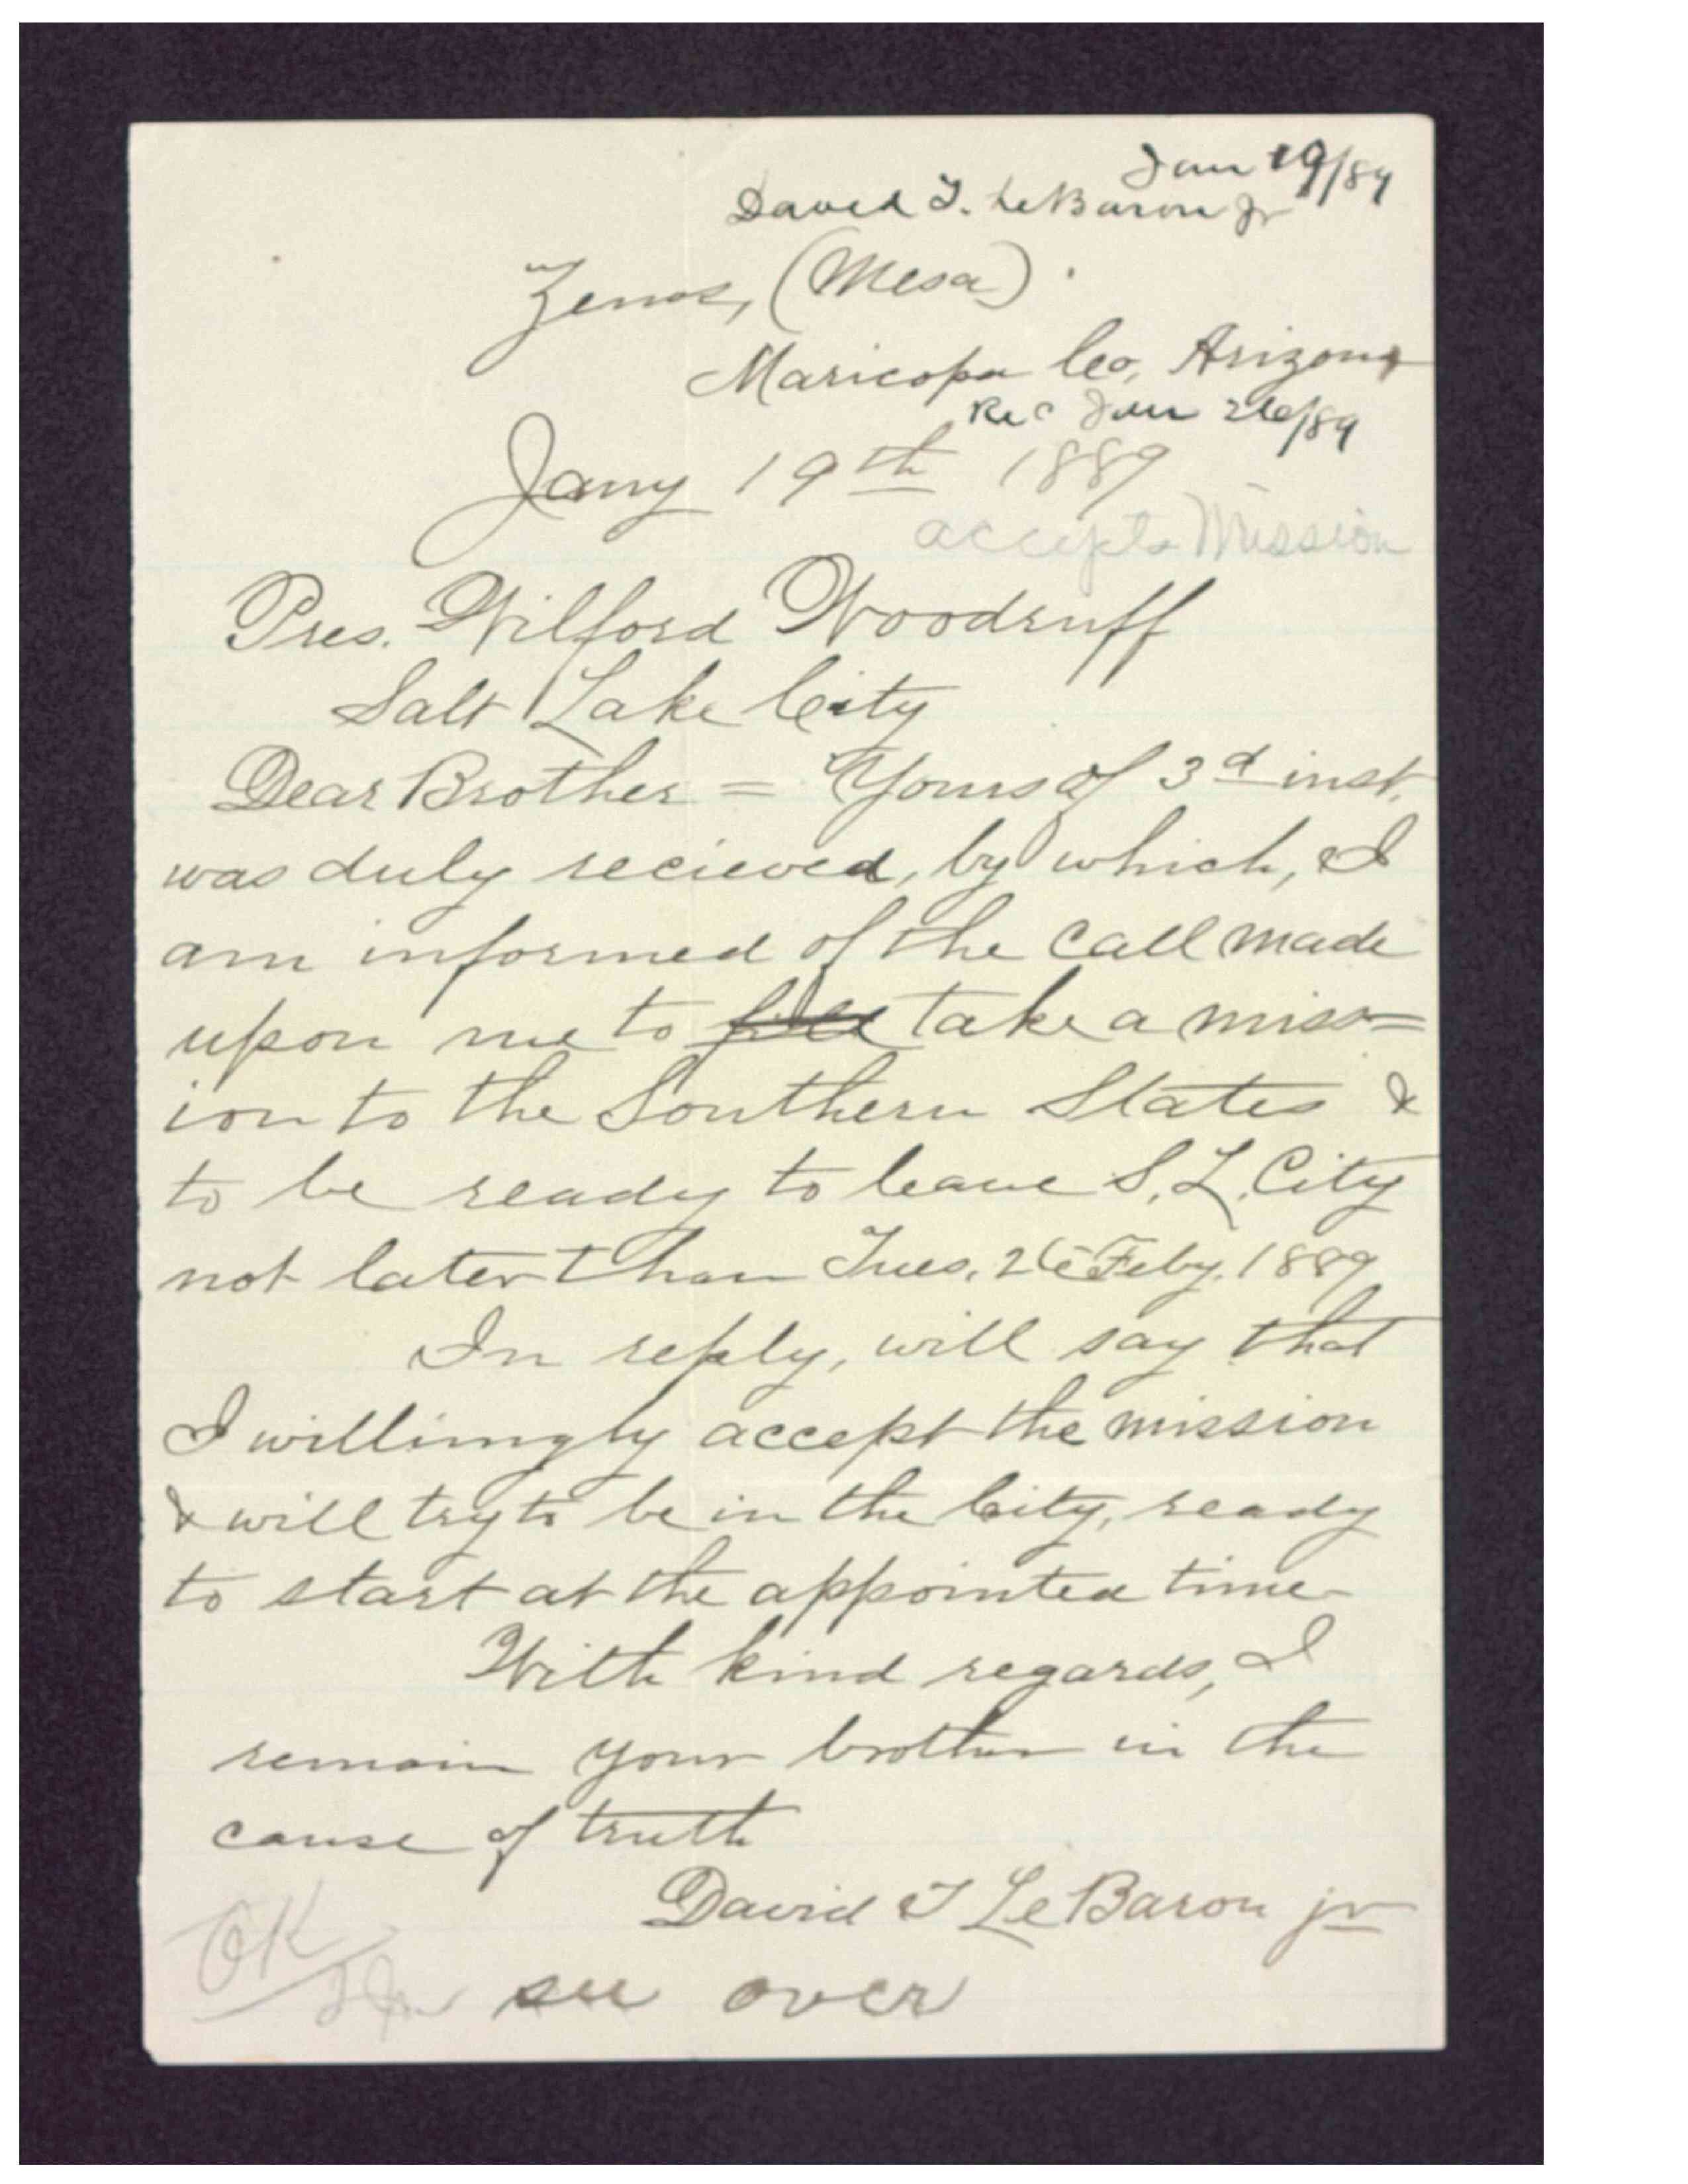 Jan 19/89
David T. LeBaron Jr
Zenos, (Mesa).
Maricopa Co, Arizona
Rec Jan 26/89
Jany 19th 1889
accepts Mission
Pres. Wilford Woodruff
Salt Lake City
Dear Brother = Yours of 3d inst.
was duly recieved, by which, I
am informed of the call made
upon me to fill take a miss=
ion to the Southern States &
to be ready to leave S. L. City
not later than Tues. 26 Feby. 1889
In reply, will say that
I willingly accept the mission
& will try to be in the City, ready
to start at the appointed time
With kind regards, I
remain your brother in the
cause of truth
David T LeBaron jr
OK
see over